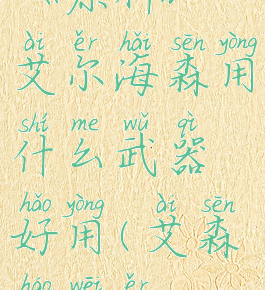 ài ěr hǎi sēn yòng
艾尔海森用
shí me wǔ qì
什么武器
hǎo yòng ài sēn
好用(艾森
hǎo wēi ěr